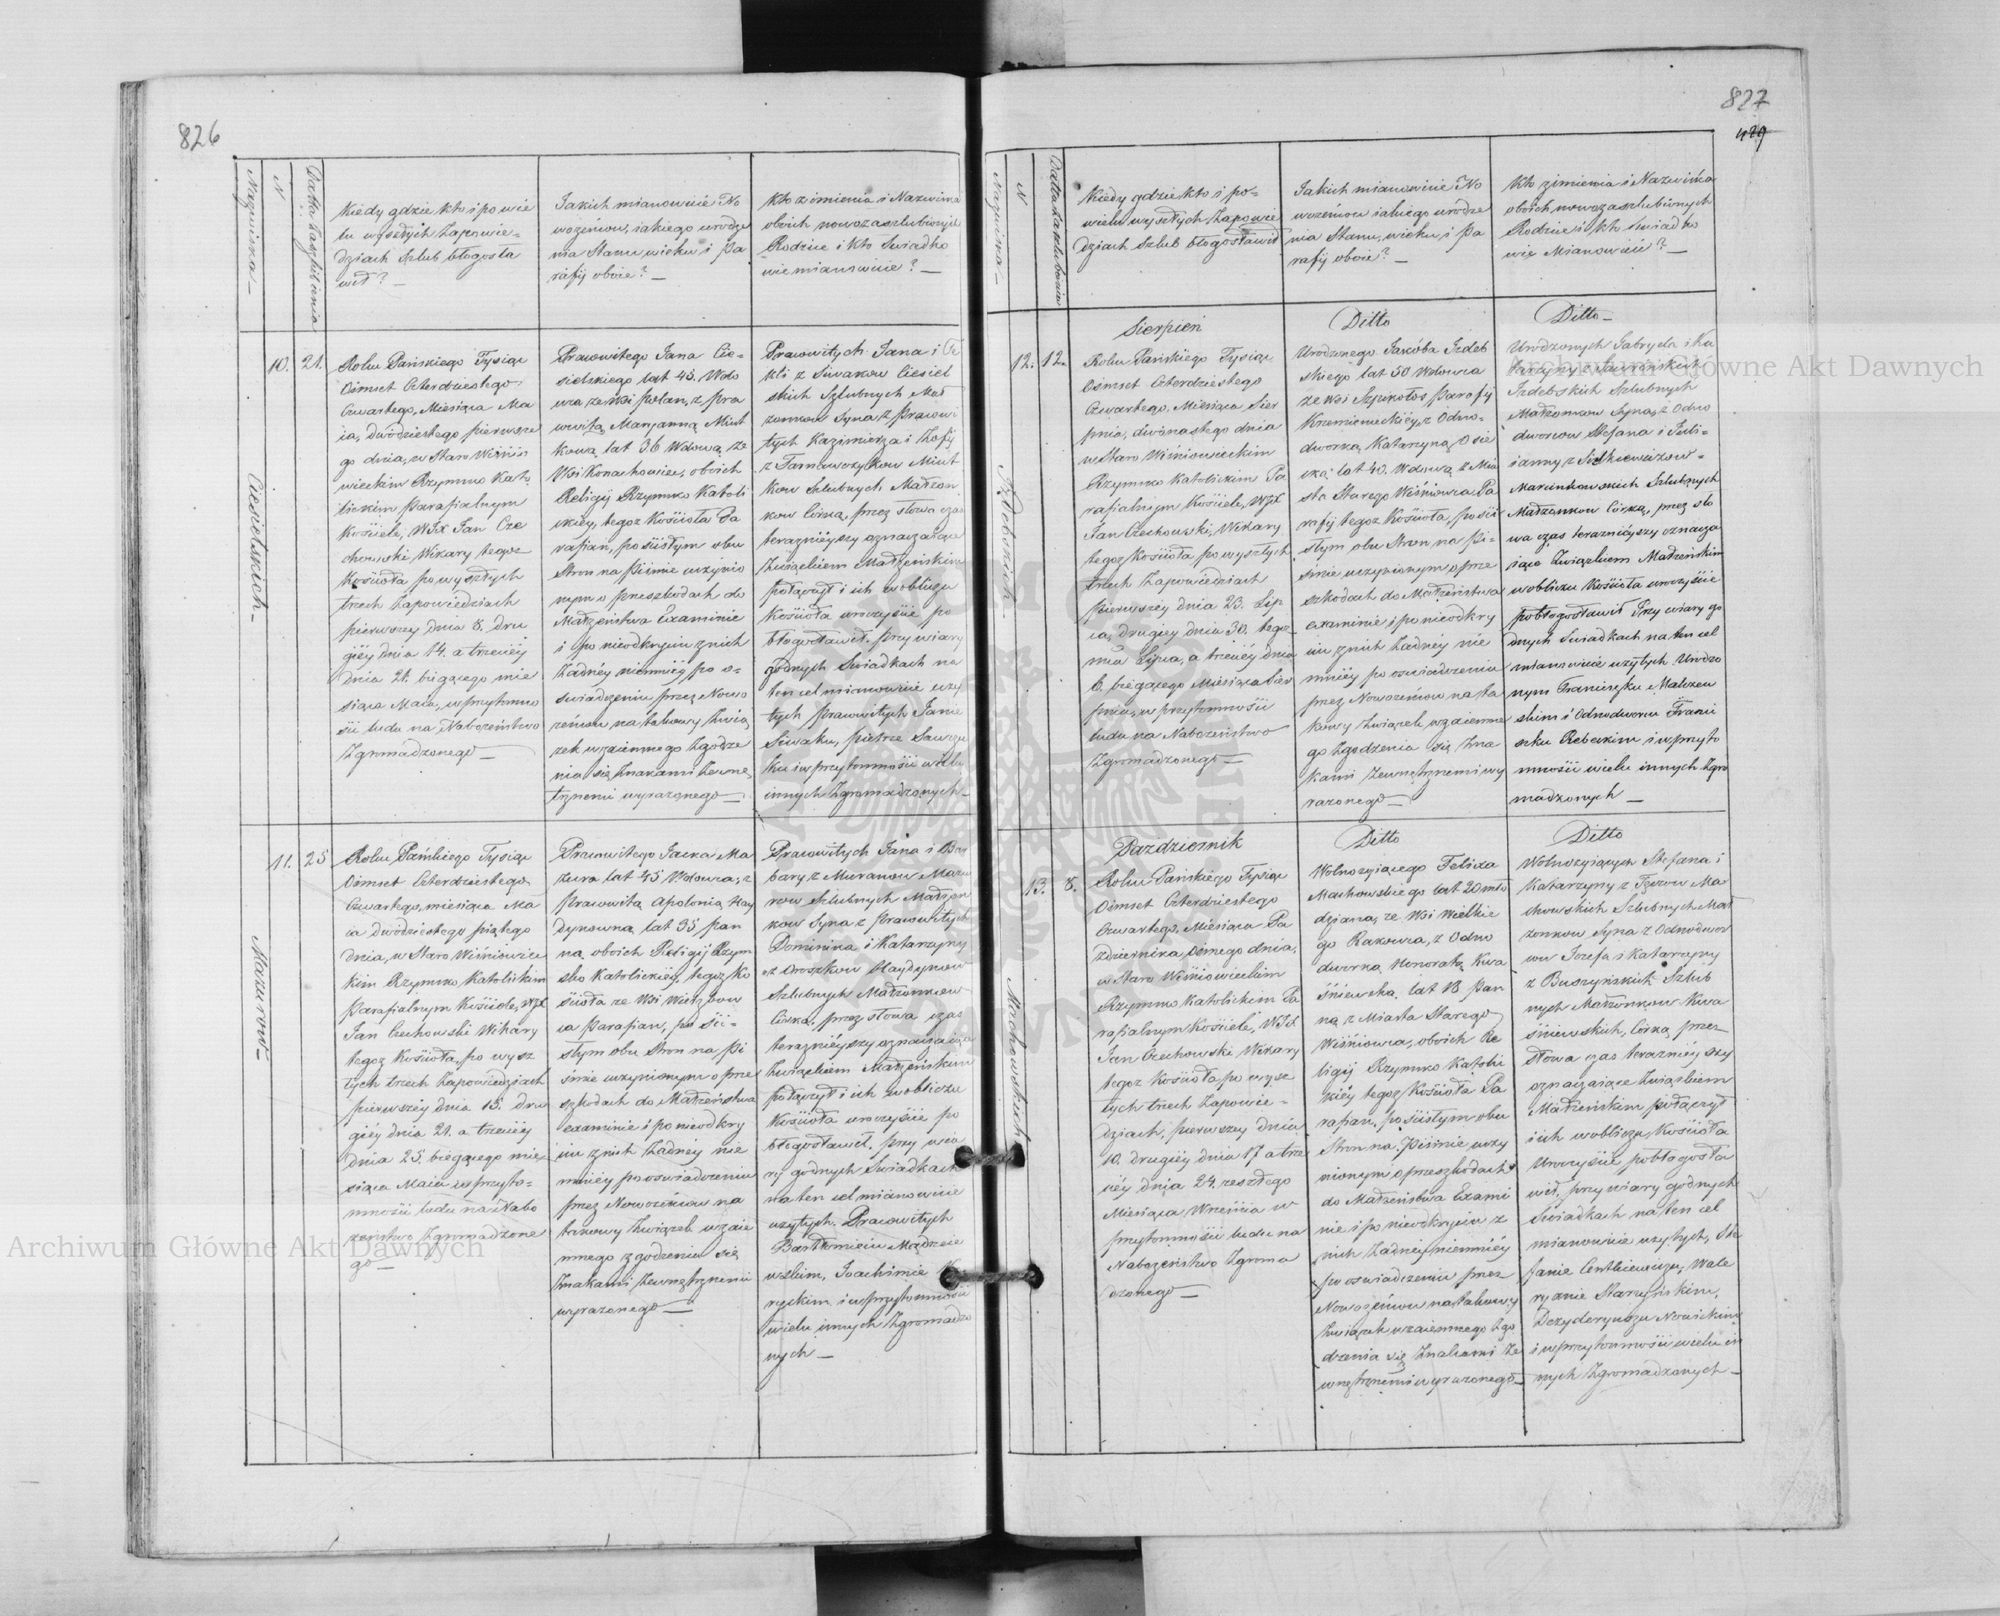 826
Nazwiska
N
Datta Zaszlubienia
Kiedy gdzie kto i po wie
lu wyszłych Zapowie=
dziach Szlub błogosła
wił? —
Jakich mianowicie No
wożeńców, iakiego urodze
nia Stanu wieku i Pa
rafij oboie? —
Kto z imienia i Nazwiska
oboich nowozaszlubionych
Rodzice i kto Swiadko
wie mianowicie? —
Ciesielskich
10.
21.
Roku Pańskiego Tysiąc
Ośmset Czterdziestego
Czwartego, Miesiąca Ma
ia, dwódziestego pierwsze
go dnia, w Staro Wiśnio
wieckim Rzymsko Kato
lickim Parafialnym
Kościele, WJX Jan Cze
chowski, Wikary tegoż
Kościoła po wyszłych
trzech Zapowiedziach
pierwszéy dnia 8. dru
giéy dnia 14. a trzeciéy
dnia 21. biegącego mie
siąca Maia, w przytomno
ści ludu na Nabożeństwo
Zgromadzonego —
Prawowitego Jana Cie=
sielskiego lat 45. Wdo
wca ze Wsi Polan, z pra
wowitą Maryanną Miut
kową lat 36 Wdową, ze
Wsi Konachowiec, oboich
Religij Rzymsko Katoli
ckiéy, tegoż Kościoła Pa
rafian, po ścisłym obu
Stron na Piśmie uczynio
nym o przeszkodach do
Małżeństwa Examinie
i po nieodkryciu z nich
Żadnéy niemniéy po o=
swiadczeniu przez Nowo
żeńców na takowy Zwią
zek wzaiemnego Zgodze
nia się Znakami Zewnę
trznemi wyrażonego —
Prawowitych Jana i Te
kli z Siwakow Ciesiel
skich Szlubnych Mał
żonkow Syna z Prawowi
tych Kazimierza i Zofij
z Tarnoworzykow Miut
kow Szlubnych Małżon
kow Córką, przez słowa czas
teraznieyszy oznaczaiące
Związkiem Małżeńskim
połączył i ich w obliczu
Kościoła uroczyście po
błogosławił, przy wiary
godnych Swiadkach na
ten cel mianowicie uży
tych Prawowitych Janie
Siwaku, Pietrze Sawczu
ku i w przytomności wielu
innych Zgromadzonych —
Mazurow
11.
25
Roku Pańskiego Tysiąc
Ośmset Czterdziestego
Czwartego, miesiąca Ma
ia dwódziestego piątego
dnia, w Staro Wiśniowiec
kim Rzymsko Katolickim
Parafialnym Kościele, WJX
Jan Czechowski Wikary
tegoż Kościoła, po wysz
łych trzech Zapowiedziach
pierwszéy dnia 15. dru
giéy dnia 21. a trzeciéy
dnia 25. biegącego mie
siąca Maia w przyto=
mności ludu na Nabo
żeństwo Zgromadzone
go —
Prawowitego Jacka Ma
zura lat 45 Wdowca, z
Prawowitą Apolonią Hay
dynowną lat 35, pan
ną, oboich Religij Rzym
sko Katolickiéy, tegoż Ko
ścioła ze Wsi Wierzbow
ca Parafian, po ści=
słym obu Stron na Pi
śmie uczynionym o prze
szkodach do Małżeństwa
examinie i po nieodkry
ciu z nich Żadnéy nie
mniéy po oswiadczeniu
przez Nowożeńcow na
takowy Związek wzaie
mnego zgodzenia się
Znakami Zewnętrznemi
wyrażonego —
Prawowitych Jana i Bar
bary z Muranow Mazu
row Szlubnych Małżon
kow Syna z Prawowitych
Dominika i Katarzyny
z Droszkow Haydynow
Szlubnych Małżonkow
Córką, przez słowa czas
teraznieyszy oznaczaiące
Związkiem Małżeńskim
połączył i ich w obliczu
Kościoła uroczyście po
błogosławił, przy wia
ry godnych Swiadkach
na ten cel mianowicie
użytych Prawowitych
Bartłomieiu Mądrzeie
wskim, Joachimie
i w przytomności
wielu innych Zgromadzo
nych —
827
429
Nazwiska
N
Datta Zaszlubienia
Kiedy gdzie kto i po=
wielu wyszłych Zapowie
dziach Szlub błogosławił
Jakich mianowicie No
wożeńcow iakiego urodze
nia Stanu, wieku, i Pa
rafij oboie? —
Kto z imienia i Nazwiska
oboich nowozaszlubionych
Rodzice i kto Swiadko
wie Mianowicie? —
Izdebskich
12.
12.
Sierpień
Roku Pańskiego Tysiąc
Ośmset Czterdziestego
Czwartego, Miesiąca Sier
pnia, dwónastego dnia
w Staro Wiśniowieckim
Rzymsko Katolickim Pa
rafialnym Kościele, WJX
Jan Czechowski, Wikary
tegoż Kościoła po wyszłych
trzech Zapowiedziach
pierwszéy dnia 23. Lip
ca, drugiéy dnia 30. tego
mca Lipca, a trzeciéy dnia
6. biegącego Miesiąca Sier
pnia, w przytomności
ludu na Nabożeństwo
Zgromadzonego —
Ditto
Urodzonego Jakóba Izdeb
skiego lat 50 Wdowca
ze Wsi Szpikołos Parafij
Krzemienieckiéy, z Odno=
dworką Katarzyną Osie
cką lat 40. Wdową z Mia
sta Starego Wiśniowca Pa
rafij tegoż Kościoła, po ści
słym obu Stron na Pi=
śmie uczynionym o prze
szkodach do Małżeństwa
examinie i po nieodkry
ciu z nich Żadnéy nie
mniéy po oswiadczeniu
przez Nowożeńcow na ta
kowy Związek wzaiemne
go Zgodzenia się Zna
kami Zewnętrznemi wy
rażonego —
Ditto —
Urodzonych Gabryela i Ka
tarzyny z
Izdebskich Szlubnych
Małżonkow Syna, z Odno
dworcow Stefana i Juli=
ianny z Sitkiewiczow=
Marcinkowskich Szlubnych
Małżonkow Córką, przez sło
wa czas teraznieyszy oznacza
iące Związkiem Małżeńskim
w obliczu Kościoła uroczyście
pobłogosławił Przy wiary go
dnych Swiadkach na ten cel
mianowicie użytych Urodzo
nym Franciszku Malczew
skim i Odnodworcu Franci
szku Rebeckim i w przyto
mności wielu innych Zgro
madzonych —
Machowskich
13.
8.
Pazdziernik
Roku Pańskiego Tysiąc
Ośmset Czterdziestego
Czwartego, Miesiąca Pa
zdziernika, Osmego dnia,
w Staro Wiśniowieckim
Rzymsko Katolickim Pa
rafialnym Kościele, WJX
Jan Czechowski Wikary
tegoż Kościoła po wysz
łych trzech Zapowie=
dziach, pierwszey dnia
10. drugiéy dnia 17 a trze
ciéy dnia 24. zeszłego
Miesiąca Września w
przytomności ludu na
Nabożeństwo Zgroma
dzonego —
Ditto
Wolnożyiącego Felixa
Machowskiego lat 20 mło
dziana, ze Wsi Wielkie
go Rakowca, z Odno
dworką Honoratą Kwa
śniewską, lat 18 pan
ną z Miasta Starego
Wiśniowca, oboich Re
ligij Rzymsko Katolic
kiéy tegoż Kościoła Pa
rafian, po ścisłym obu
Stron na Piśmie uczy
nionym o przeszkodach
do Małżeństwa Exami
nie i po nieodkryciu z
nich Żadnéy niemniéy
po oswiadczeniu przez
Nowożeńcow na takowy
Związek wzaiemnego Zgo
dzenia się Znakami Ze
wnętrznemi wyrażonego —
Ditto
Wolnożyiących Stefana i
Katarzyny z Ma
chowskich Szlubnych Mał
żonkow Syna z Odnodwor
cow Jozefa i Katarzyny
z Buszyńskich Szlub
nych Małżonkow Kwa
śniewskich, Córką przez
słowa czas teraznieyszy
oznaczaiące Związkiem
Małżeńskim połączył
i ich w obliczu Kościoła
Uroczyście pobłogosła
wił, przy wiary godnych
Swiadkach na ten cel
mianowicie użytych, Ste
fanie Centkiewiczu, Wale
ryanie Starzyńskim,
Dezyderyuszu Nowickim
i w przytomności wielu in
nych Zgromadzonych —
Archiwum Główne Akt Dawnych
Archiwum Główne Akt Dawnych